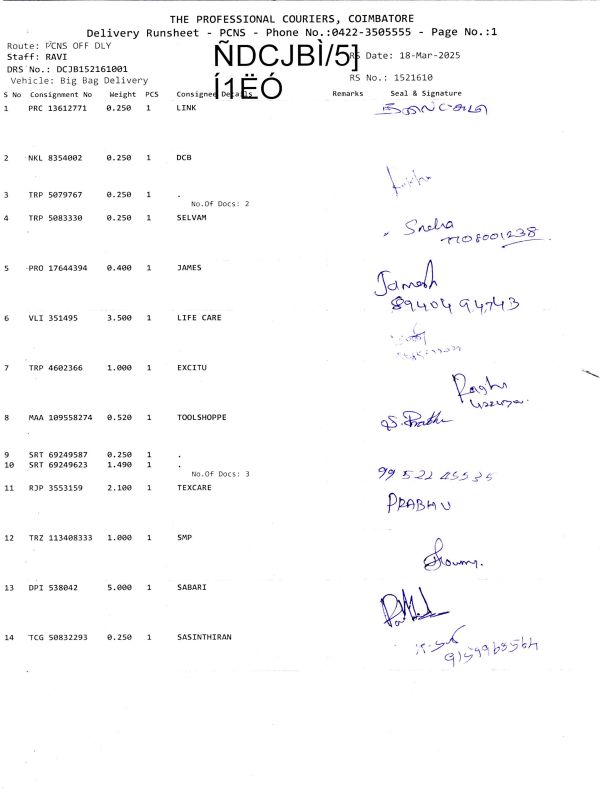 THE PROFESSIONAL COURIERS, COIMBATORE
Delivery Runsheet - PCNS - Phone No.:0422-3505555 - Page No.:1
Route: PCNS OFF DLY
Staff: RAVI
ÑDCJBÌ/5]
RS Date: 18-Mar-2025
DRS No.: DCJB152161001
Í1ËÓ
RS No.: 1521610
Vehicle: Big Bag Delivery
S No Consignment No Weight PCS Consignee Details Remarks Seal & Signature
1 PRC 13612771 0.250 1 LINK
2 NKL 8354002 0.250 1 DCB
3 TRP 5079767 0.250 1 .
No.Of Docs: 2
4 TRP 5083330 0.250 1 SELVAM
Sneha
7708001238
5 PRO 17644394 0.400 1 JAMES
Jamesh
89404 94743
6 VLI 351495 3.500 1 LIFE CARE
7 TRP 4602366 1.000 1 EXCITU
Raghu
8 MAA 109558274 0.520 1 TOOLSHOPPE
9 SRT 69249587 0.250 1 .
10 SRT 69249623 1.490 1 .
No.Of Docs: 3
99522 45535
11 RJP 3553159 2.100 1 TEXCARE
PRABHU
12 TRZ 113408333 1.000 1 SMP
13 DPI 538042 5.000 1 SABARI
14 TCG 50832293 0.250 1 SASINTHIRAN